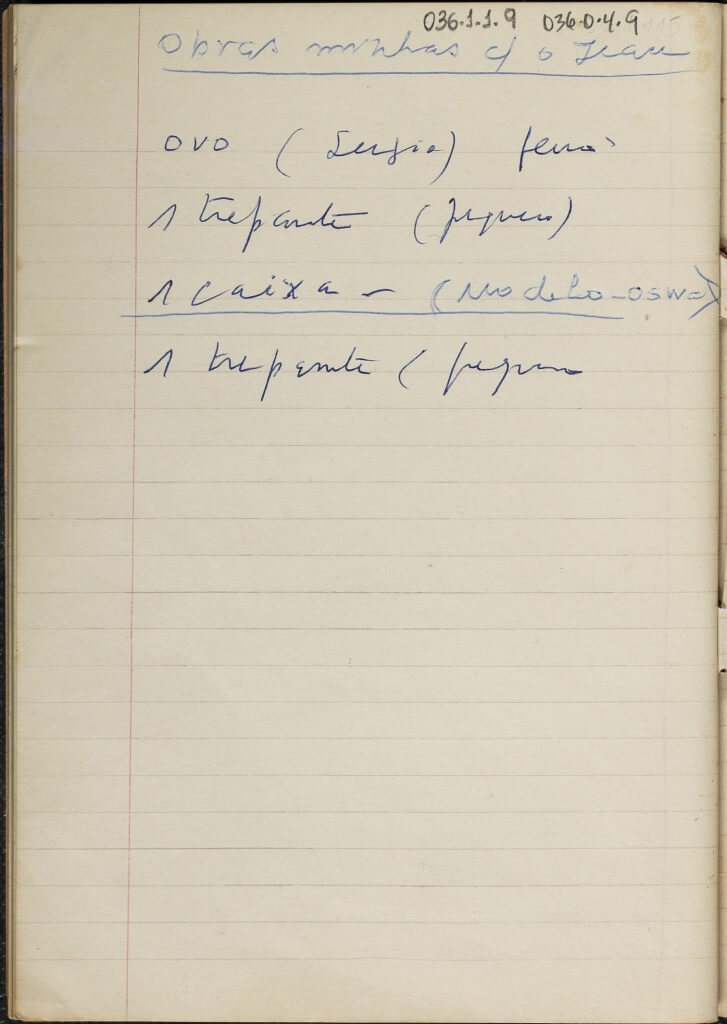 036.1.1.9 036.0.4.9
Obras minhas c/ o Jean
OVO (Sergio)
1 trepante (pequeno)
1 caixa - (Modelo-OSW
1 trepante (pequeno